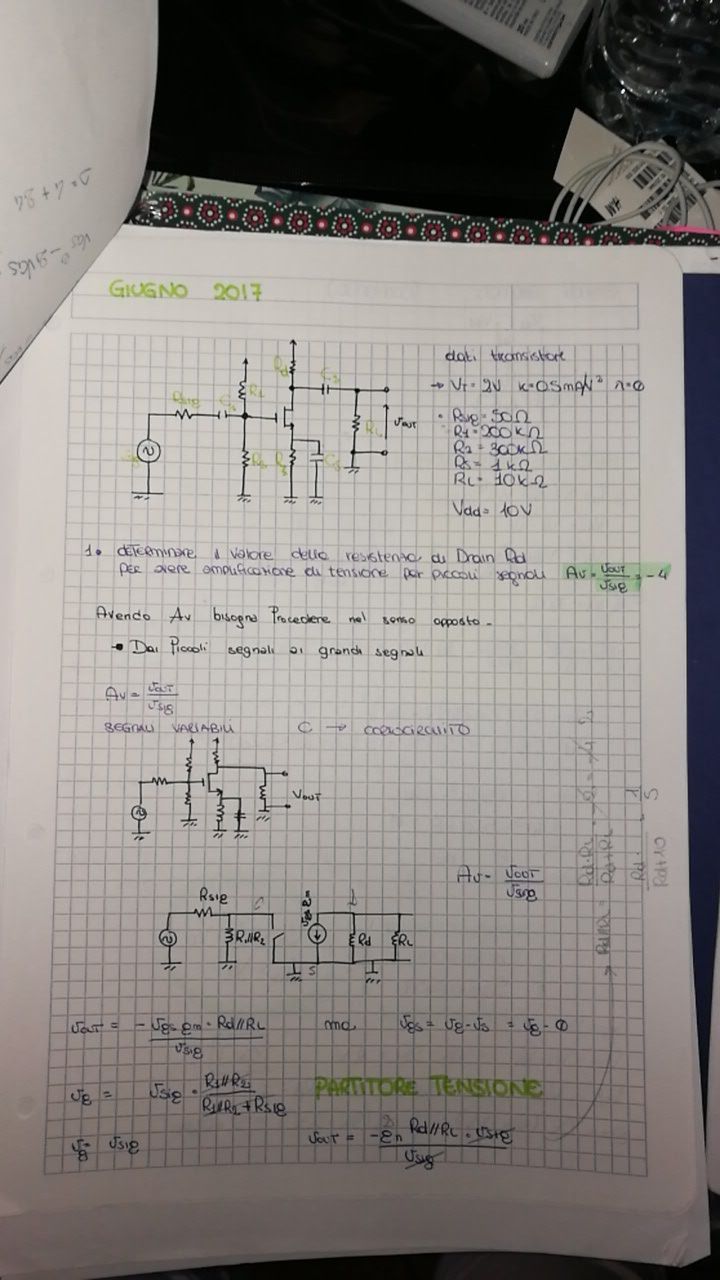 GIUGNO 2017
dati transistore
→ VT = 2V K=0.5mA/V² λ=0
Rsig = 50Ω
R1 = 200kΩ
R2 = 300kΩ
RS = 1kΩ
RL = 10kΩ
Vdd = 10V
Rsig
R1
Rd
RL
vout
1. determinare il valore della resistenza di Drain Rd
per avere amplificazione di tensione per piccoli segnali Av = vout/vsig = -4
Avendo Av bisogna Procedere nel senso opposto.
Dai Piccoli segnali ai grandi segnali
Av = vout/vsig
SEGNALI VARIABILI C → cortocircuito
Vout
Av = vout/vsig
Rsig
R1//R2
vgs gm
S
Rd
RL
vout = - vgs gm · Rd//RL / vsig ma vgs = vg - vs = vg - 0
vg = vsig · R1//R2 / R1//R2 + Rsig PARTITORE TENSIONE
vg = vsig vout = -gm Rd//RL · vsig / vsig